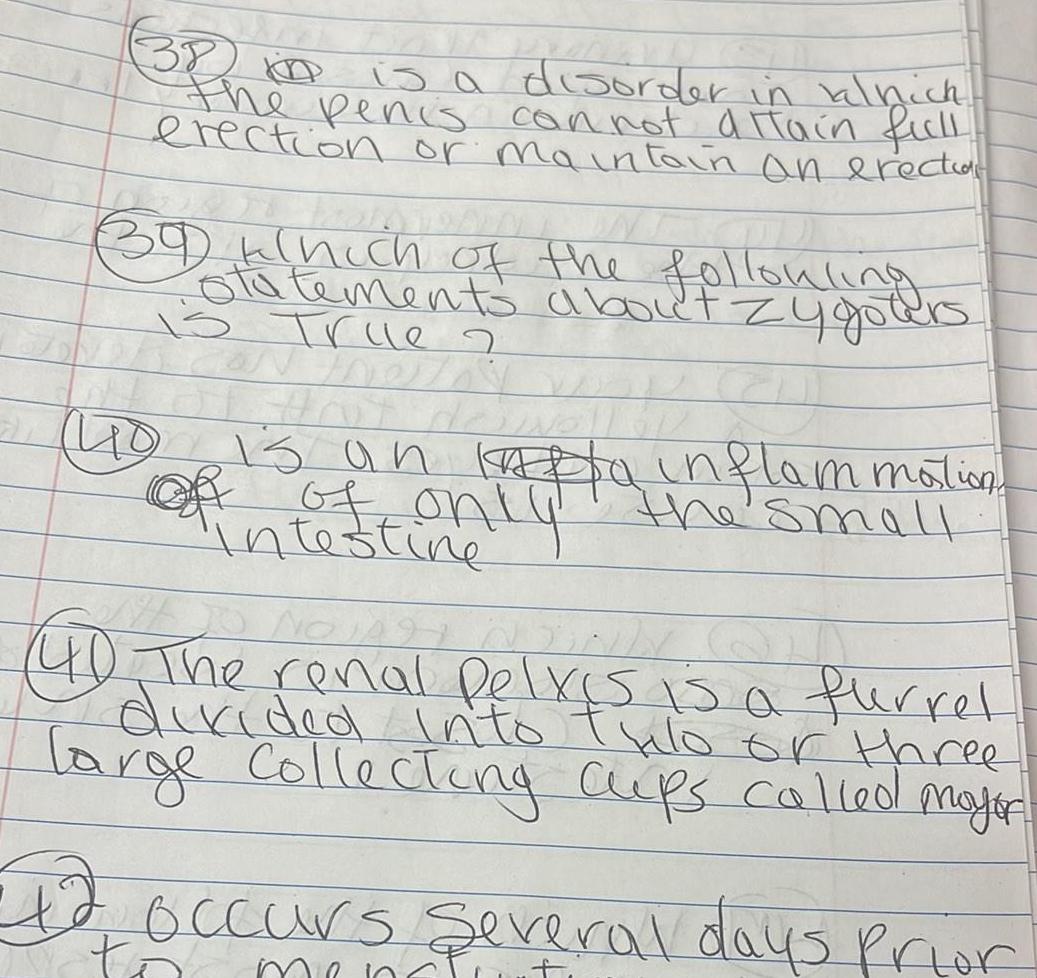 38 is a disorder in which
the penis cannot attain full
erection or maintain an
39 which of the following
statements about
is True?
40 is an inflammation
of only the small
intestine
41 The renal pelvis is a furrel
divided into two or three
large collecting cups called major
42 occurs several days prior
to